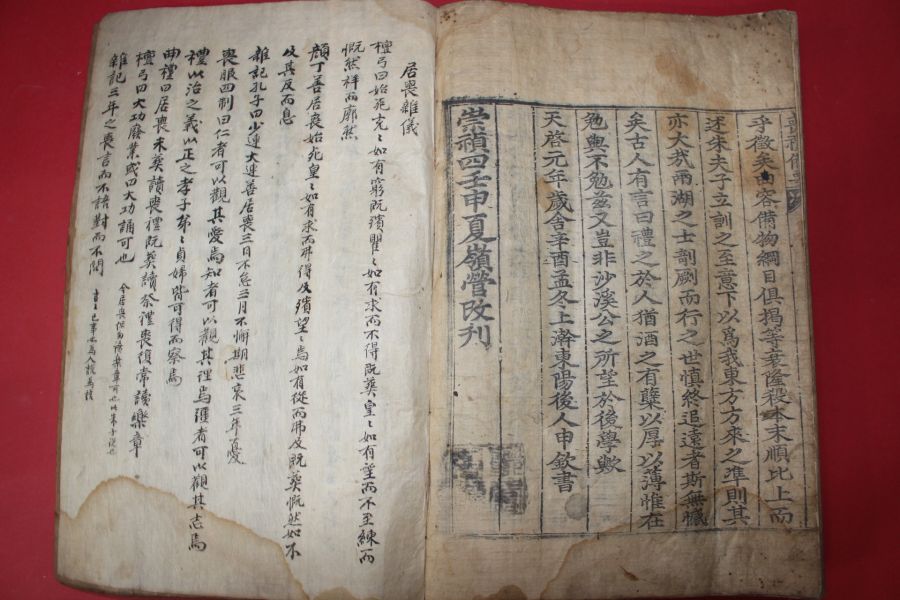 喪禮備要
乎徵矣而容備物綱目俱揭等衰隆殺本末順比上而
述朱夫子立訓之至意下以爲我東方方來之準則其
亦大哉兩湖之士剞劂而行之世愼終追遠者斯無憾
矣古人有言曰禮之於人猶酒之有糵以厚以薄惟在
勉與不勉玆又豈非沙溪公之所望於後學歟
天啓元年歲舍辛酉孟冬上澣東陽後人申欽書
崇禎四壬申夏嶺營改刊
居喪雜儀
檀弓曰始死充〻如有窮既殯瞿〻如有求而不得既葬皇〻如有望而不至練而
慨然祥而廓然
顔丁善居喪始死皇〻如有求而弗得及殯望〻焉如有從而弗及既葬慨然如不
及其反而息
雜記孔子曰少連大連善居喪三日不怠三月不懈期悲哀三年憂
喪服四制曰仁者可以觀其愛焉知者可以觀其理焉彊者可以觀其志焉
禮以治之義以正之孝子弟〻貞婦皆可得而察焉
曲禮曰居喪未葬讀喪禮既葬讀祭禮喪復常讀樂章
檀弓曰大功廢業或曰大功誦可也
今居喪但勿讀樂章可也
雜記三年之喪言而不語對而不問
言〻己事也爲人說爲語